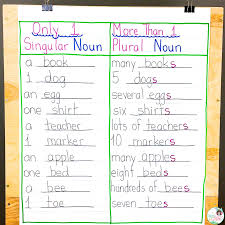 Only 1 More Than 1
Singular Noun Plural Noun
a book many books
1 dog 5 dogs
an egg several eggs
one shirt six shirts
a teacher lots of teachers
1 marker 10 markers
an apple many apples
one bed eight beds
a bee hundreds of bees
1 toe seven toes